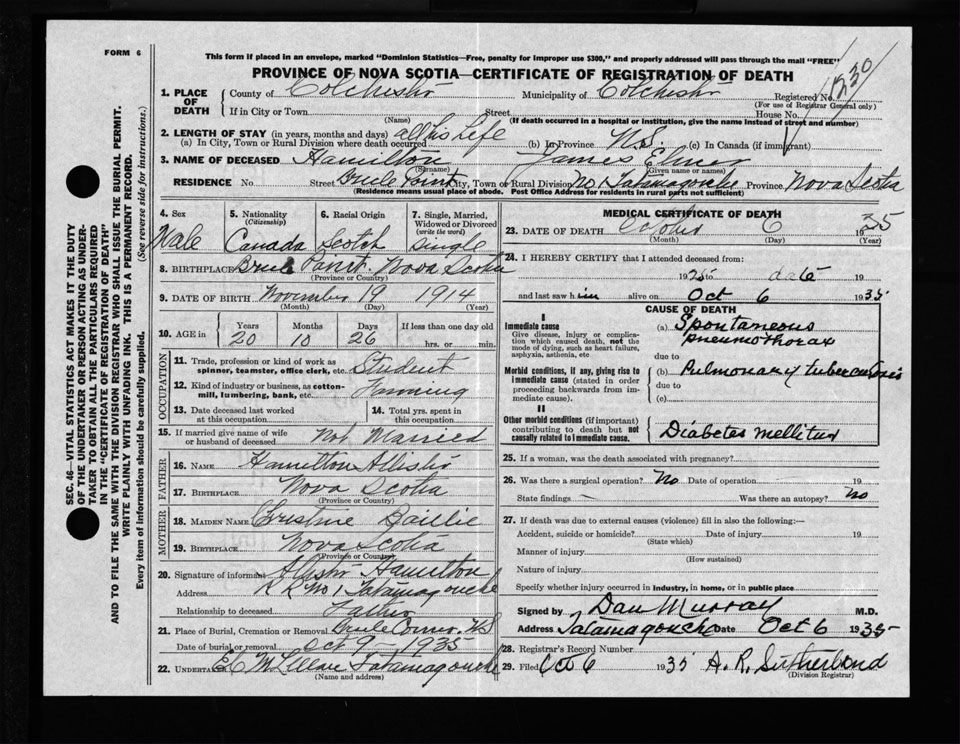 FORM 6
This form if placed in an envelope, marked "Dominion Statistics—Free, penalty for improper use $300," and properly addressed will pass through the mail "FREE"
PROVINCE OF NOVA SCOTIA—CERTIFICATE OF REGISTRATION OF DEATH
1. PLACE OF DEATH County of Colchester Municipality of Colchester Registered No.
(For use of Registrar General only)
If in City or Town Street House No.
(Name) (If death occurred in a hospital or institution, give the name instead of street and number)
2. LENGTH OF STAY (in years, months and days) all his life
(a) In City, Town or Rural Division where death occurred (b) In Province N.S. (c) In Canada (if immigrant)
3. NAME OF DECEASED Hamilton James Elmer
(Surname) (Given name or names)
RESIDENCE No. Street Brule Point City, Town or Rural Division No 1 Tatamagouche Province Nova Scotia
(Residence means usual place of abode. Post Office Address for residents in rural parts not sufficient)
4. Sex 5. Nationality 6. Racial Origin 7. Single, Married, Widowed or Divorced
(Citizenship) (write the word)
Male Canada Scotch Single
8. BIRTHPLACE Brule Point. Nova Scotia
(Province or Country)
9. DATE OF BIRTH November 19 1914
(Month) (Day) (Year)
10. AGE in Years Months Days If less than one day old
20 10 26 hrs. or min.
OCCUPATION
11. Trade, profession or kind of work as spinner, teamster, office clerk, etc. Student
12. Kind of industry or business, as cotton-mill, lumbering, bank, etc. Farming
13. Date deceased last worked at this occupation 14. Total yrs. spent in this occupation
15. If married give name of wife or husband of deceased Not Married
FATHER
16. NAME Hamilton Allister
17. BIRTHPLACE Nova Scotia
(Province or Country)
MOTHER
18. MAIDEN NAME Christine Baillie
19. BIRTHPLACE Nova Scotia
(Province or Country)
20. Signature of informant Allister Hamilton
Address R R No 1 Tatamagouche
Relationship to deceased Father
21. Place of Burial, Cremation or Removal Brule Corner N.S.
Date of burial or removal Oct 9 1935
22. UNDERTAKER Tatamagouche
(Name and address)
MEDICAL CERTIFICATE OF DEATH
23. DATE OF DEATH October 6 1935
(Month) (Day) (Year)
24. I HEREBY CERTIFY that I attended deceased from:
19 25 to date 19
and last saw h im alive on Oct 6 1935
CAUSE OF DEATH
I
Immediate cause
Give disease, injury or complication which caused death, not the mode of dying, such as heart failure, asphyxia, asthenia, etc
(a) Spontaneous pneumothorax
due to
Morbid conditions, if any, giving rise to immediate cause (stated in order proceeding backwards from immediate cause).
(b) Pulmonary tuberculosis
due to
(c)
II
Other morbid conditions (if important) contributing to death but not causally related to immediate cause.
Diabetes mellitus
25. If a woman, was the death associated with pregnancy?
26. Was there a surgical operation? No Date of operation 19
State findings — Was there an autopsy? No
27. If death was due to external causes (violence) fill in also the following:—
Accident, suicide or homicide? Date of injury 19
(State which)
Manner of injury
(How sustained)
Nature of injury
Specify whether injury occurred in Industry, in home, or in public place
Signed by Dan Murray M.D.
Address Tatamagouche Date Oct 6 1935
28. Registrar's Record Number
29. Filed Oct 6 1935 A. R. Sutherland
(Division Registrar)
SEC. 46—VITAL STATISTICS ACT MAKES IT THE DUTY
OF THE UNDERTAKER OR PERSON ACTING AS UNDER-
TAKER TO OBTAIN ALL THE PARTICULARS REQUIRED
IN THE "CERTIFICATE OF REGISTRATION OF DEATH"
AND TO FILE THE SAME WITH THE DIVISION REGISTRAR WHO SHALL ISSUE THE BURIAL PERMIT.
WRITE PLAINLY WITH UNFADING INK. THIS IS A PERMANENT RECORD.
Every item of information should be carefully supplied. (See reverse side for instructions.)